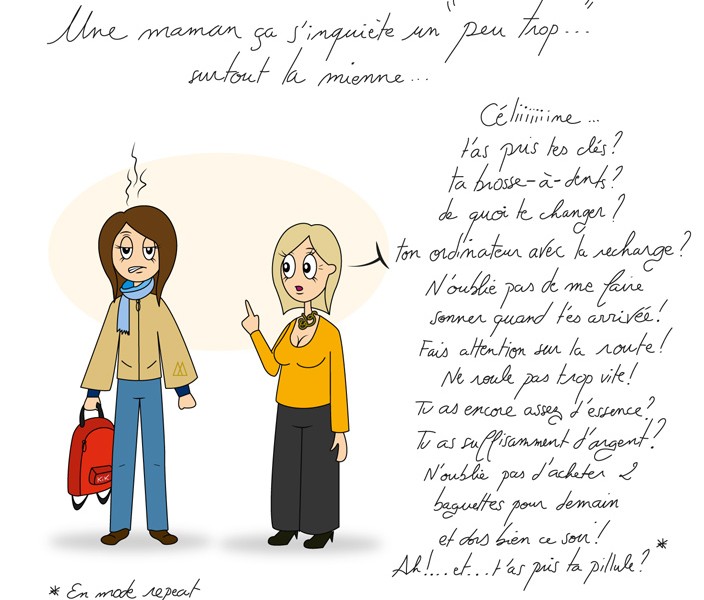 Une maman ça s'inquiète un "peu trop..."
surtout la mienne...
Céliiiiiiine...
t'as pris tes clés?
ta brosse-à-dents?
de quoi te changer?
ton ordinateur avec la recharge?
N'oublie pas de me faire
sonner quand t'es arrivée!
Fais attention sur la route!
Ne roule pas trop vite!
Tu as encore assez d'essence?
Tu as suffisamment d'argent?
N'oublie pas d'acheter 2
baguettes pour demain
et dors bien ce soir!
Ah!...et...t'as pris ta pillule? *
* En mode repeat